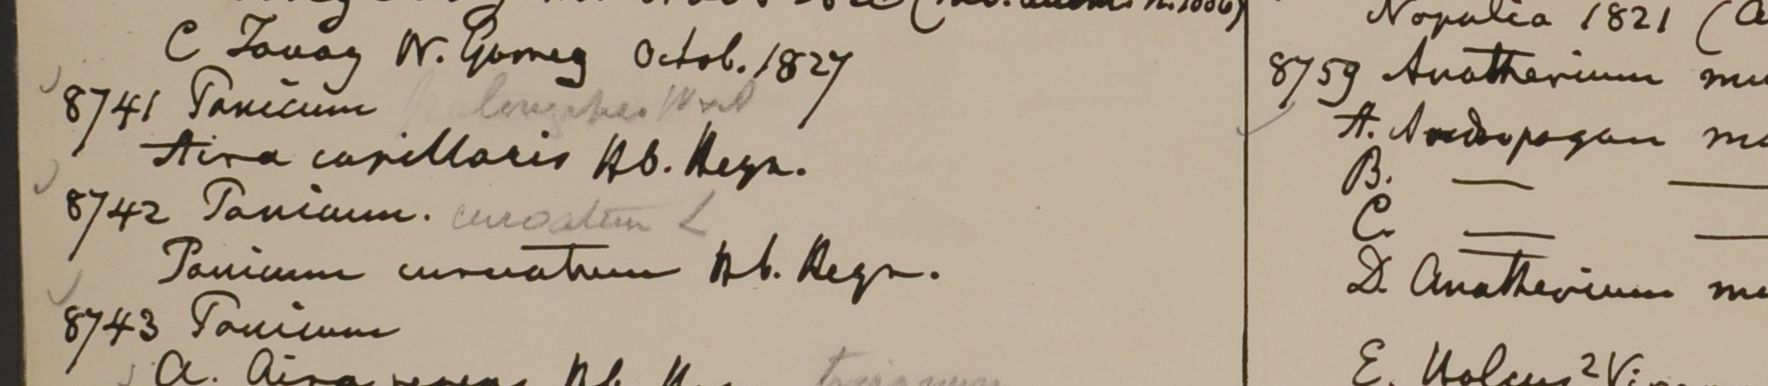 C Tavoy W. Gomez Octob. 1827
8741 Panicum
Aira capillaris Hb. Heyn.
8742 Panicum. curvatum L
Panicum curvatum Hb. Heyn.
8743 Panicum
A. Aira Hb.
Nopalia 1821
8759 Anatherium
A. Andropogon
B. —— ——
C. —— ——
D. Anatherium
E. Holcus